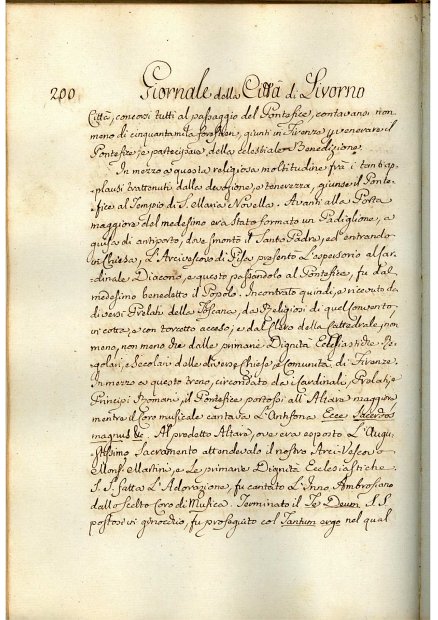 200 Giornale della Città di Livorno
Città, concorsi tutti al passaggio del Pontefice, contavansi non
meno di cinquantamila forestieri, giunti in Firenze p venerare il
Pontefice, e partecipare della celestiale Benedizione.
In mezzo a questa religiosa moltitudine frà i tanti ap-
plausi dalla devozione, e tenerezza, giunse il Ponte-
fice al Tempio di S. Maria Novella. Avanti alla Porta
maggiore del medesimo era stato formato un Padiglione, a
guisa di antiporto, dove smontò il Santo Padre, ed entrando
in Chiesa, L'Arcivescovo di Pisa presentò L'aspersorio al Car-
dinale Diacono, e questo passandolo al Pontefice, fu dal
medesimo benedetto il Popolo. Incontrato quindi, e ricevuto da
diversi Prelati della Toscana, da Religiosi di quel Convento,
in cotta, e con torcetto acceso, e dal Clero della Cattedrale, non
meno, che dalle primarie Dignità Eclesiastiche Re-
golari, e Secolari delle diverse Chiese, e Comunità di Firenze.
In mezzo a questo treno, circondato da Cardinali, Prelati, e
Principi Romani, il Pontefice portossi all'Altare maggiore
mentre il Coro musicale cantava L'Antifona Ecce Sacerdos
magnus &c. Al predetto Altare, ove era esposto L'Augu-
stissimo Sacramento attendevalo il nostro Arcivescovo
Mons. Martini, e Le primarie Dignità Ecclesiastiche.
S. S. fatta L'Adorazione, fu cantato L'Inno Ambrosiano
dallo Scelto Coro di Musica. Terminato il Te Deum S. S.
postosi in ginocchio, fu proseguito col Tantum ergo nel qual